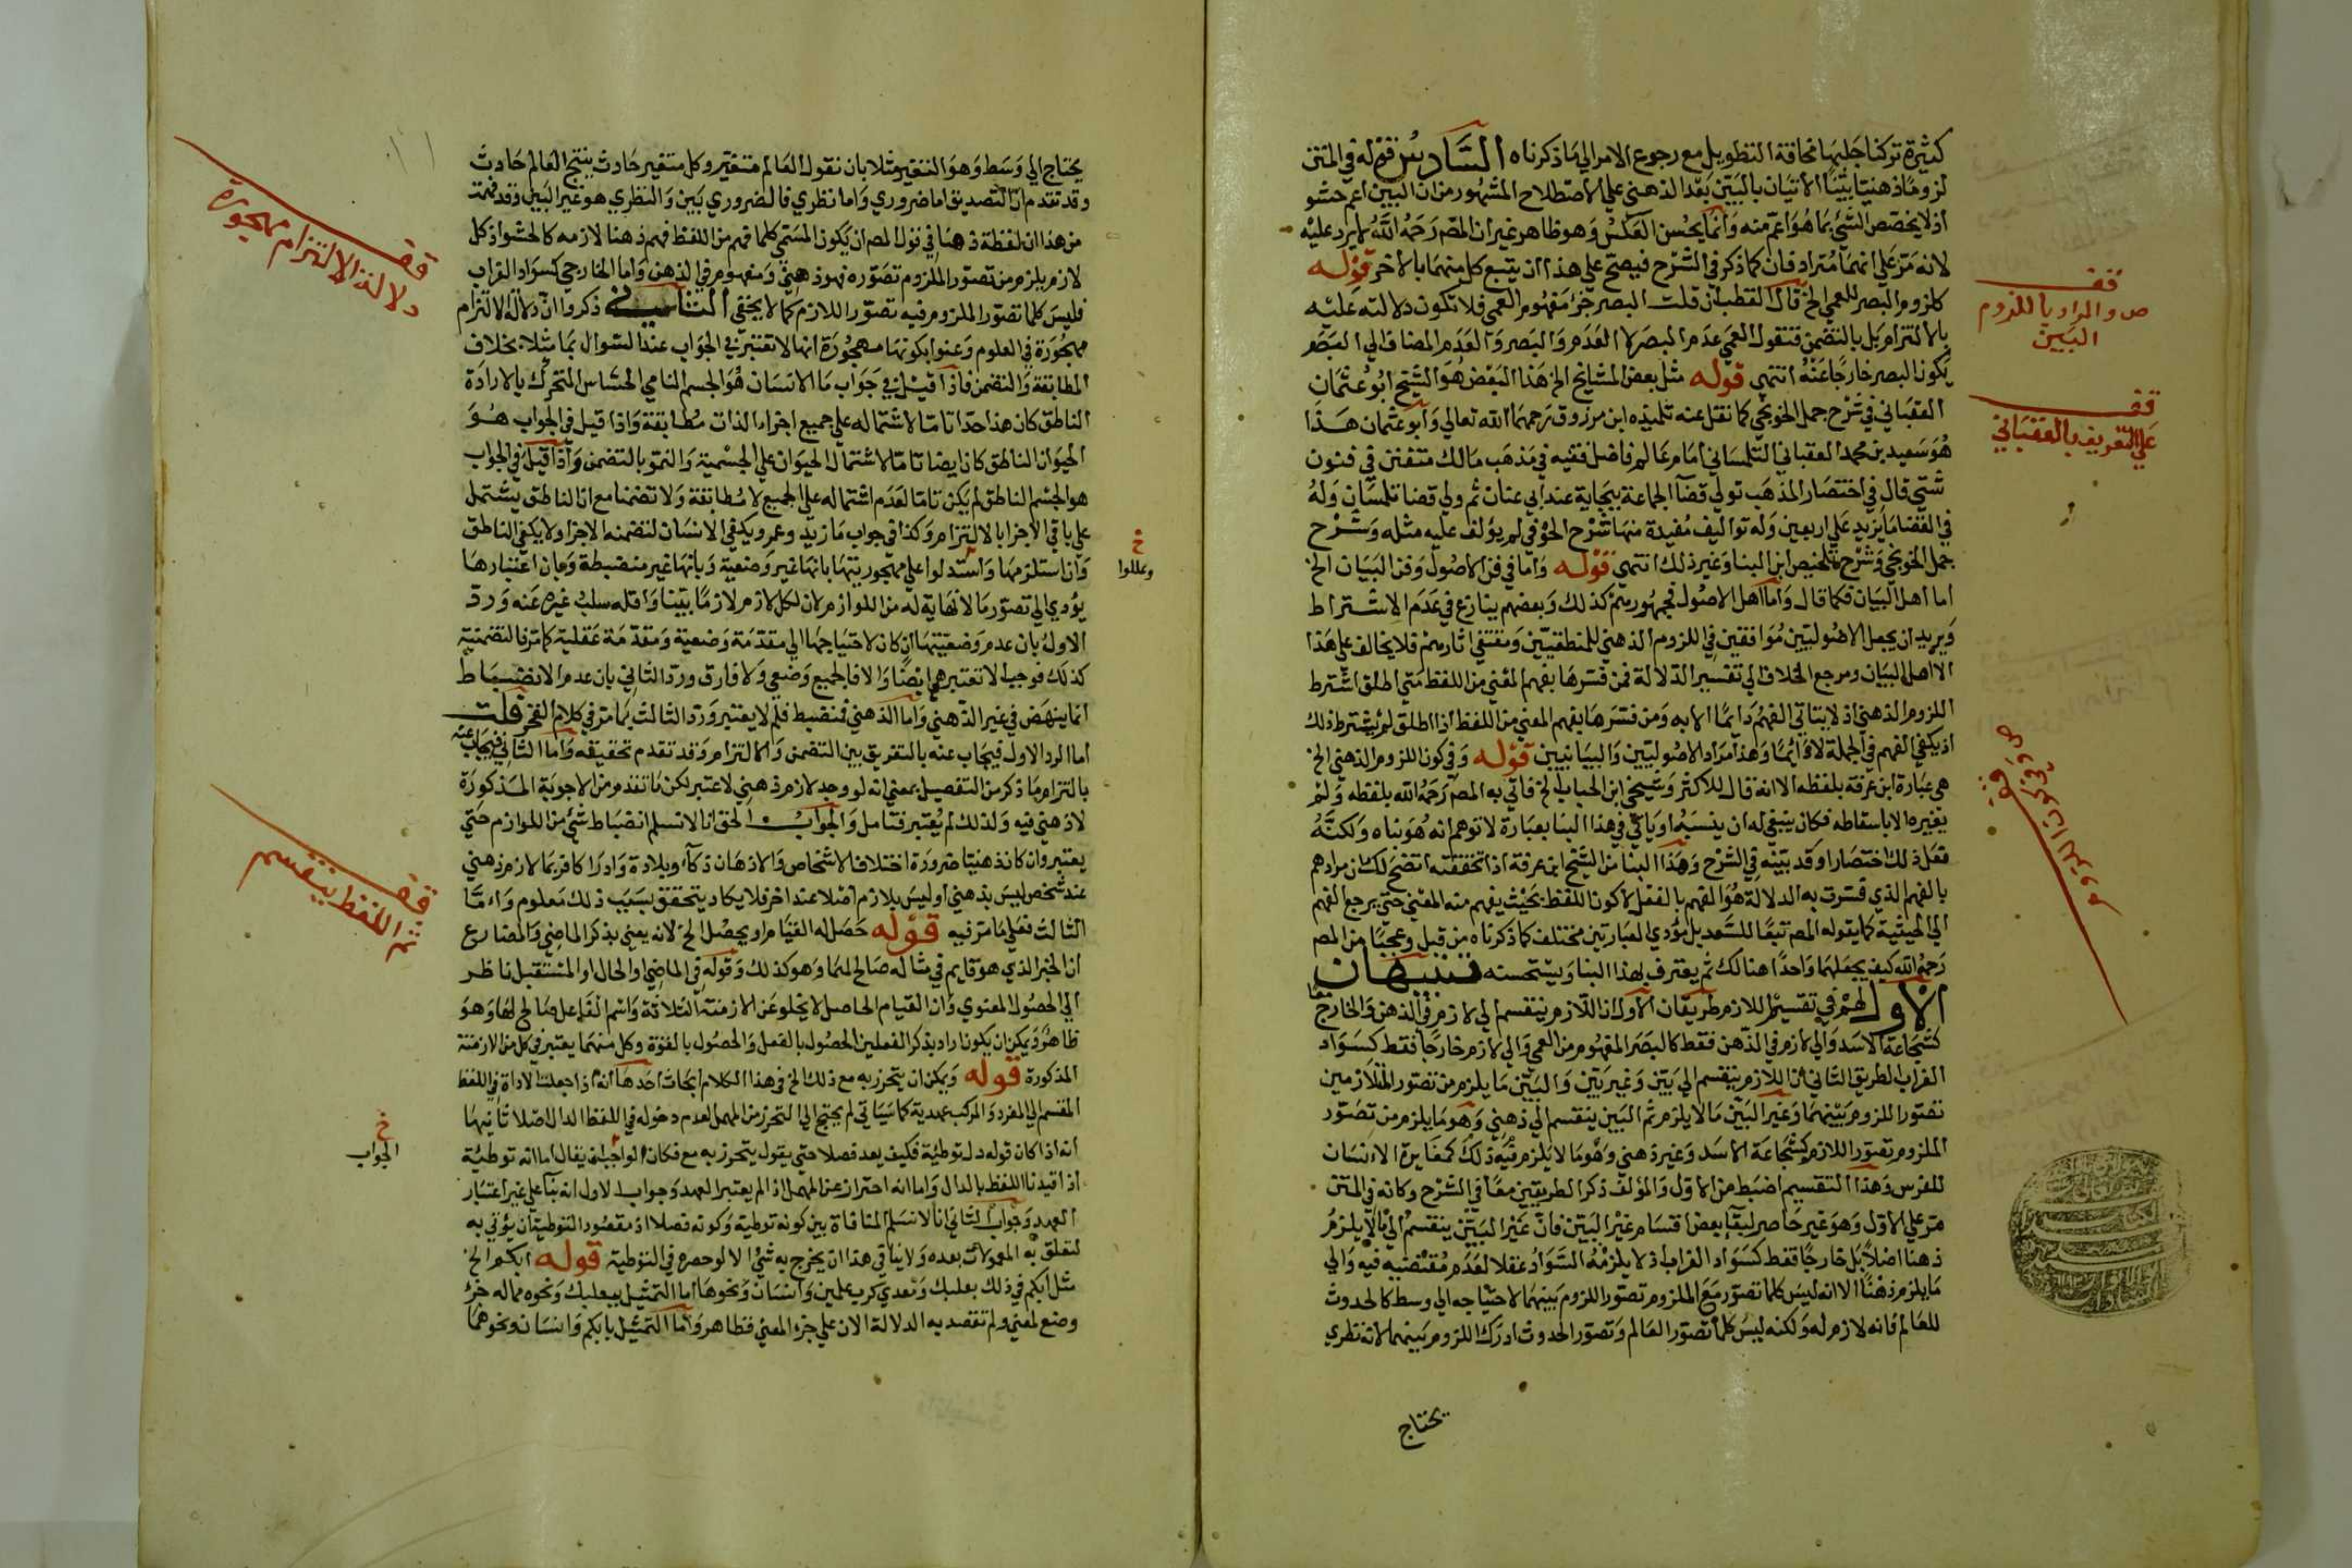 كثيرة تركنا جلبها مخافة التطويل مع رجوع الامر الي ما ذكرناه السادس قوله في المتن
لزوما ذهنيا بينا الاتيان بالبين بعد الذهني علي الاصطلاح المشهور من ان البين اعم حشو
اذ لا يخصص الشئ بما هو اعم منه وانما يحسن العكس وهو ظاهر غير ان المص رحمه الله لا يرد عليه
لانه مر علي انهما مترادفان كما ذكر في الشرح فيصح علي هذا ان يتبع كل منهما بالاخر قوله
كلزوم البصر للعمي الخ قال القطب ان قلت البصر جزء مفهوم العمي فلا تكون دلالته عليه
بالالتزام بل بالتضمن فنقول العمي عدم البصر لا العدم والبصر والعدم المضاف الي البصر
يكون البصر خارجا عنه انتهي قوله مثل بعض المشايخ الخ هذا البعض هو الشيخ ابو عثمان
العقباني في شرح جمل الخونجي كما نقل عنه تلميذه ابن مرزوق رحمهما الله تعالي وابو عثمان هذا
هو سعيد بن محمد العقباني التلمساني امام عالم فاضل فقيه في مذهب مالك متفنن في فنون
شتي قال في اختصار المذهب تولي قضا الجماعة ببجاية عند ابي عنان ثم ولي قضا تلمسان وله
في القضا ما يزيد علي اربعين وله تواليف مفيدة منها شرح الحوفي لم يؤلف عليه مثله وشرح
جمل الخونجي وشرح تلخيص ابن البنا وغير ذلك انتهي قوله واما في فن الاصول وفن البيان الخ
اما اهل البيان فكما قال واما اهل الاصول فجمهورهم كذلك وبعضهم ينازع في عدم الاشتراط
ويريد ان يجعل الاصوليين موافقين في اللزوم الذهني للمنطقيين ومقتفي اثارهم فلا يخالف علي هذا
الا اهل البيان ومرجع الخلاف الي تفسير الدلالة فمن فسرها بفهم المعني من اللفظ متي اطلق اشترط
اللزوم الذهني اذ لا يتاتي الفهم دايما الا به ومن فسرها بفهم المعني من اللفظ اذا اطلق لم يشترط ذلك
اذ يكفي الفهم في الجملة لا دايما وهذا مراد الاصوليين والبيانيين قوله وفي كون اللزوم الذهني الخ
هي عبارة ابن عرفة بلفظه الا انه قال للاكثر وشيخي ابن الحباب الخ فاتي به المص رحمه الله بلفظه ولم
يغيره الا باسقاطه فكان ينبغي له ان ينسبه او ياتي في هذا البنا بعبارة لا توهم انه هو بناه ولكنه
فعل ذلك اختصارا وقد بينه في الشرح وهذا البنا من الشيخ ابن عرفة اذا تحققته اتضح لك ان مرادهم
بالفهم الذي فسرت به الدلالة هو الفهم بالفعل لا كون اللفظ بحيث يفهم منه المعني حتي يرجع الفهم
الي الحيثية كما يقوله المص تبعا للسعد بل مؤدي العبارتين مختلف كما ذكرناه من قبل وعجبا من المص
رحمه الله كيف يجعلهما واحدا هنالك ثم يعترف بهذا البنا ويستحسنه تنبيهان
الاول لهم في تقسيم اللازم طريقان الاول ان اللازم ينقسم الي لازم في الذهن والخارج معا
كشجاعة الاسد والي لازم في الذهن فقط كالبصر المفهوم من العمي والي لازم خارجا فقط كسواد
الغراب الطريق الثاني ان اللازم ينقسم الي بين وغير بين والبين ما يلزم من تصور المتلازمين
تصور اللزوم بينهما وغير البين ما لا يلزم ثم البين ينقسم الي ذهني وهو ما يلزم من تصور
الملزوم تصور اللازم كشجاعة الاسد وغير ذهني وهو ما لا يلزم فيه ذلك كمغايرة الانسان
للفرس وهذا التقسيم اضبط من الاول والمؤلف ذكر الطريقين معا في الشرح وكانه في المتن
مر علي الاول وهو غير حاصر لبقا بعض اقسام غير البين فان غير البين ينقسم الي ما لا يلزم
ذهنا اصلا بل خارجا فقط كسواد الغراب اذ لا يلزمه السواد عقلا لعدم مقتضيه فيه والي
ما يلزم ذهنا الا انه ليس كلما تصور مع الملزوم تصور اللزوم بينهما لاحتياجه الي وسط كالحدوث
للعالم فانه لازم له ولكنه ليس كلما تصور العالم وتصور الحدوث ادرك اللزوم بينهما لانه نظري
يحتاج
قف
ص والمراد باللزوم
البين
قف
علي التعريف بالعقباني
قف
ص وفي كون اللزوم
يحتاج الي وسط وهو التغير مثلا بان نقول العالم متغير وكل متغير حادث ينتج العالم حادث
وقد تقدم ان التصديق اما ضروري واما نظري فالضروري بين والنظري هو غير البين وقد فهمت
من هذا ان لفظة ذهنا في قول المص ان يكون المسمي كلما فهم من اللفظ فهم ذهنا لازمه كالحشو اذ كل
لازم يلزم من تصور الملزوم تصوره فهو ذهني ومفهوم في الذهن واما الخارجي كسواد الغراب
فليس كلما تصور الملزوم فيه تصور اللازم كما لا يخفي الثاني ذكروا ان دلالة الالتزام
مهجورة في العلوم وعنوا بكونها مهجورة انها لا تعتبر في الجواب عند السوال بما مثلا بخلاف
المطابقة والتضمن فاذا قيل في جواب ما الانسان هو الجسم النامي الحساس المتحرك بالارادة
الناطق كان هذا حدا تاما لاشتماله علي جميع اجزاء الذات مطابقة واذا قيل في الجواب هو
الحيوان الناطق كان ايضا تاما لاشتمال الحيوان علي الجسمية والنمو بالتضمن واذا قيل في الجواب
هو الجسم الناطق لم يكن تاما لعدم اشتماله علي الجميع لا مطابقة ولا تضمنا مع ان الناطق يشتمل
علي باقي الاجزا بالالتزام وكذا في جواب ما زيد وعمرو ويكفي الانسان لتضمنه الاجزا ولا يكفي الناطق
وان استلزمها واستدلوا علي مهجوريتها بانها غير وضعية وبانها غير منضبطة وبان اعتبارها
يؤدي الي تصور ما لا نهاية له من اللوازم لان لكل لازم لازما بينا واقله سلب غيره عنه ورد
الاول بان عدم وضعيتها ان كان لاحتياجها الي مقدمة وضعية ومقدمة عقلية كما مر فالتضمنية
كذلك فوجب الا تعتبر هي ايضا والا فالجميع وضعي ولا فارق ورد الثاني بان عدم الانضباط
انما ينهض في غير الذهني واما الذهني فمنضبط فلم لا يعتبر ورد الثالث بما مر في كلام الفخر قلت
اما الرد الاول فيجاب عنه بالتفريق بين التضمن والالتزام وقد تقدم تحقيقه واما الثاني فيجاب عنه
بالتزام ما ذكر من التفصيل بمعني انه لو وجد لازم ذهني لاعتبر لكن ما تقدم من الاجوبة المذكورة
لا ذهني فيه ولذلك لم يعتبر فتامل والجواب الحق انا لا نسلم انضباط شئ من اللوازم حتي
يعتبر وان كان ذهنيا ضرورة اختلاف الاشخاص والاذهان ذكاء وبلادة وادراكا فربما لازم ذهني
عند شخص ليس بذهني او ليس بلازم اصلا عند اخر فلا يكاد يتحقق بسبب ذلك معلوم واما
الثالث فعلي ما مر فيه قوله حصل له القيام او يحصل الخ لانه يعني بذكر الماضي والمضارع
ان الخبر الذي هو قايم في مثاله صالح لهما وهو كذلك وقوله في الماضي او الحال او المستقبل ناظر
الي الحصول المعنوي وان القيام الحاصل لا يخلو عن الازمنة الثلاثة واسم الفاعل صالح لها وهو
ظاهر ويمكن ان يكون اراد بذكر الفعلين الحصول بالفعل والحصول بالقوة وكل منهما يعتبر في كل من الازمنة
المذكورة قوله ويمكن ان يتحرز به مع ذلك الخ في هذا الكلام ابحاث احدها انه اذا جعلت الاداة في اللفظ
المقسم الي المفرد والمركب عهدية كما سياتي لم يحتج الي التحرز من المهمل لعدم دخوله في اللفظ الدال اصلا ثانيها
انه اذا كان قوله دل توطية فكيف يعد فصلا حتي يقول يتحرز به مع فكان الواجب ان يقال اما انه توطية
اذا قيدنا اللفظ بالدال واما انه احتراز عن المهمل اذا لم يعتبر العهد وجواب الاول انه بنا علي غير اعتبار
العهد وجواب الثاني انا لا نسلم المنافاة بين كونه توطية وكونه فصلا اذ مقصود التوطية ان يؤتي به
لتعلق به المعمولات بعده ولا ينافي هذا ان يخرج به شئ الا لو حصره في التوطية قوله ابكم الخ
مثل ابكم في ذلك بعلبك ومعدي كرب علمين وانسان ونحوها اما التمثيل ببعلبك ونحوه مما له جزء
وضع لمعني ولم تقصد به الدلالة الان علي جزء المعني فظاهر واما التمثيل بابكم وانسان ونحوهما
قف
دلالة الالتزام مهجورة
خ
وعللوا
قف
ثم اللفظ ينقسم
خ
الجواب